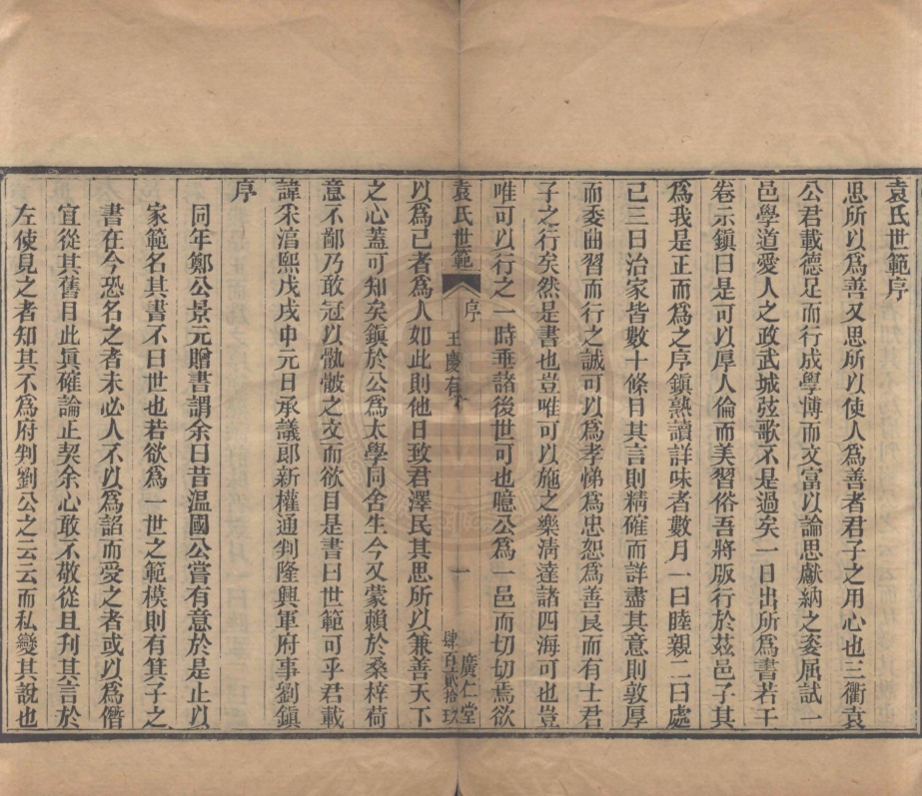 袁氏世範序
思所以爲善又思所以使人爲善者君子之用心也三衢袁
公君載德足而行成學博而文富以論思獻納之姿屈試一
邑學道愛人之政武城弦歌不是過矣一日出所爲書若干
卷示鎮曰是可以厚人倫而美習俗吾將版行於茲邑子其
爲我是正而爲之序鎮熟讀詳味者數月一曰睦親二曰處
已三曰治家皆數十條目其言則精確而詳盡其意則敦厚
而委曲習而行之誠可以爲孝悌爲忠恕爲善良而有士君
子之行矣然是書也豈唯可以施之樂清達諸四海可也豈
唯可以行之一時垂諸後世可也噫公爲一邑而切切焉欲
袁氏世範
序
王慶有
一
廣仁堂
肆百貳拾玖
以爲已者爲人如此則他日致君澤民其思所以兼善天下
之心蓋可知矣鎮於公爲太學同舍生今又蒙賴於桑梓荷
意不鄙乃敢冠以骫骳之文而欲目是書曰世範可乎君載
諱采淳熙戊戌中元日承議郎新權通判隆興軍府事劉鎮
序
同年鄭公景元贈書謂余曰昔溫國公嘗有意於是止以
家範名其書不曰世也若欲爲一世之範模則有箕子之
書在今恐名之者未必人不以爲諂而愛之者或以爲僭
宜從其舊目此眞確論正契余心敢不敬從且刊其言於
左使見之者知其不爲府判劉公之云云而私變其說也